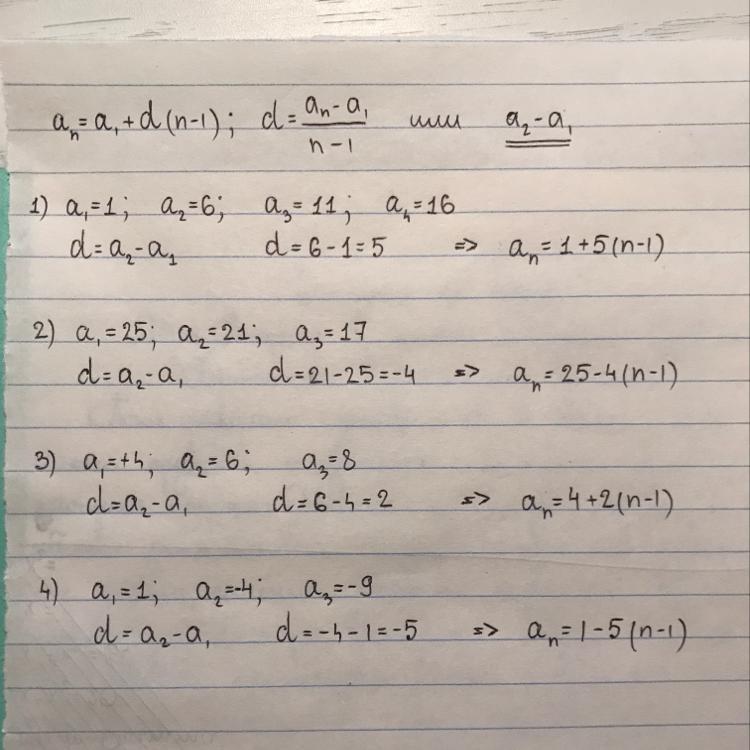 aₙ = a₁ + d(n-1); d = (aₙ - a₁)/(n - 1) или a₂ - a₁
1) a₁ = 1; a₂ = 6; a₃ = 11; a₄ = 16
d = a₂ - a₁ d = 6 - 1 = 5 => aₙ = 1 + 5(n-1)
2) a₁ = 25; a₂ = 21; a₃ = 17
d = a₂ - a₁ d = 21 - 25 = -4 => aₙ = 25 - 4(n-1)
3) a₁ = +4; a₂ = 6; a₃ = 8
d = a₂ - a₁ d = 6 - 4 = 2 => aₙ = 4 + 2(n-1)
4) a₁ = 1; a₂ = -4; a₃ = -9
d = a₂ - a₁ d = -4 - 1 = -5 => aₙ = 1 - 5(n-1)